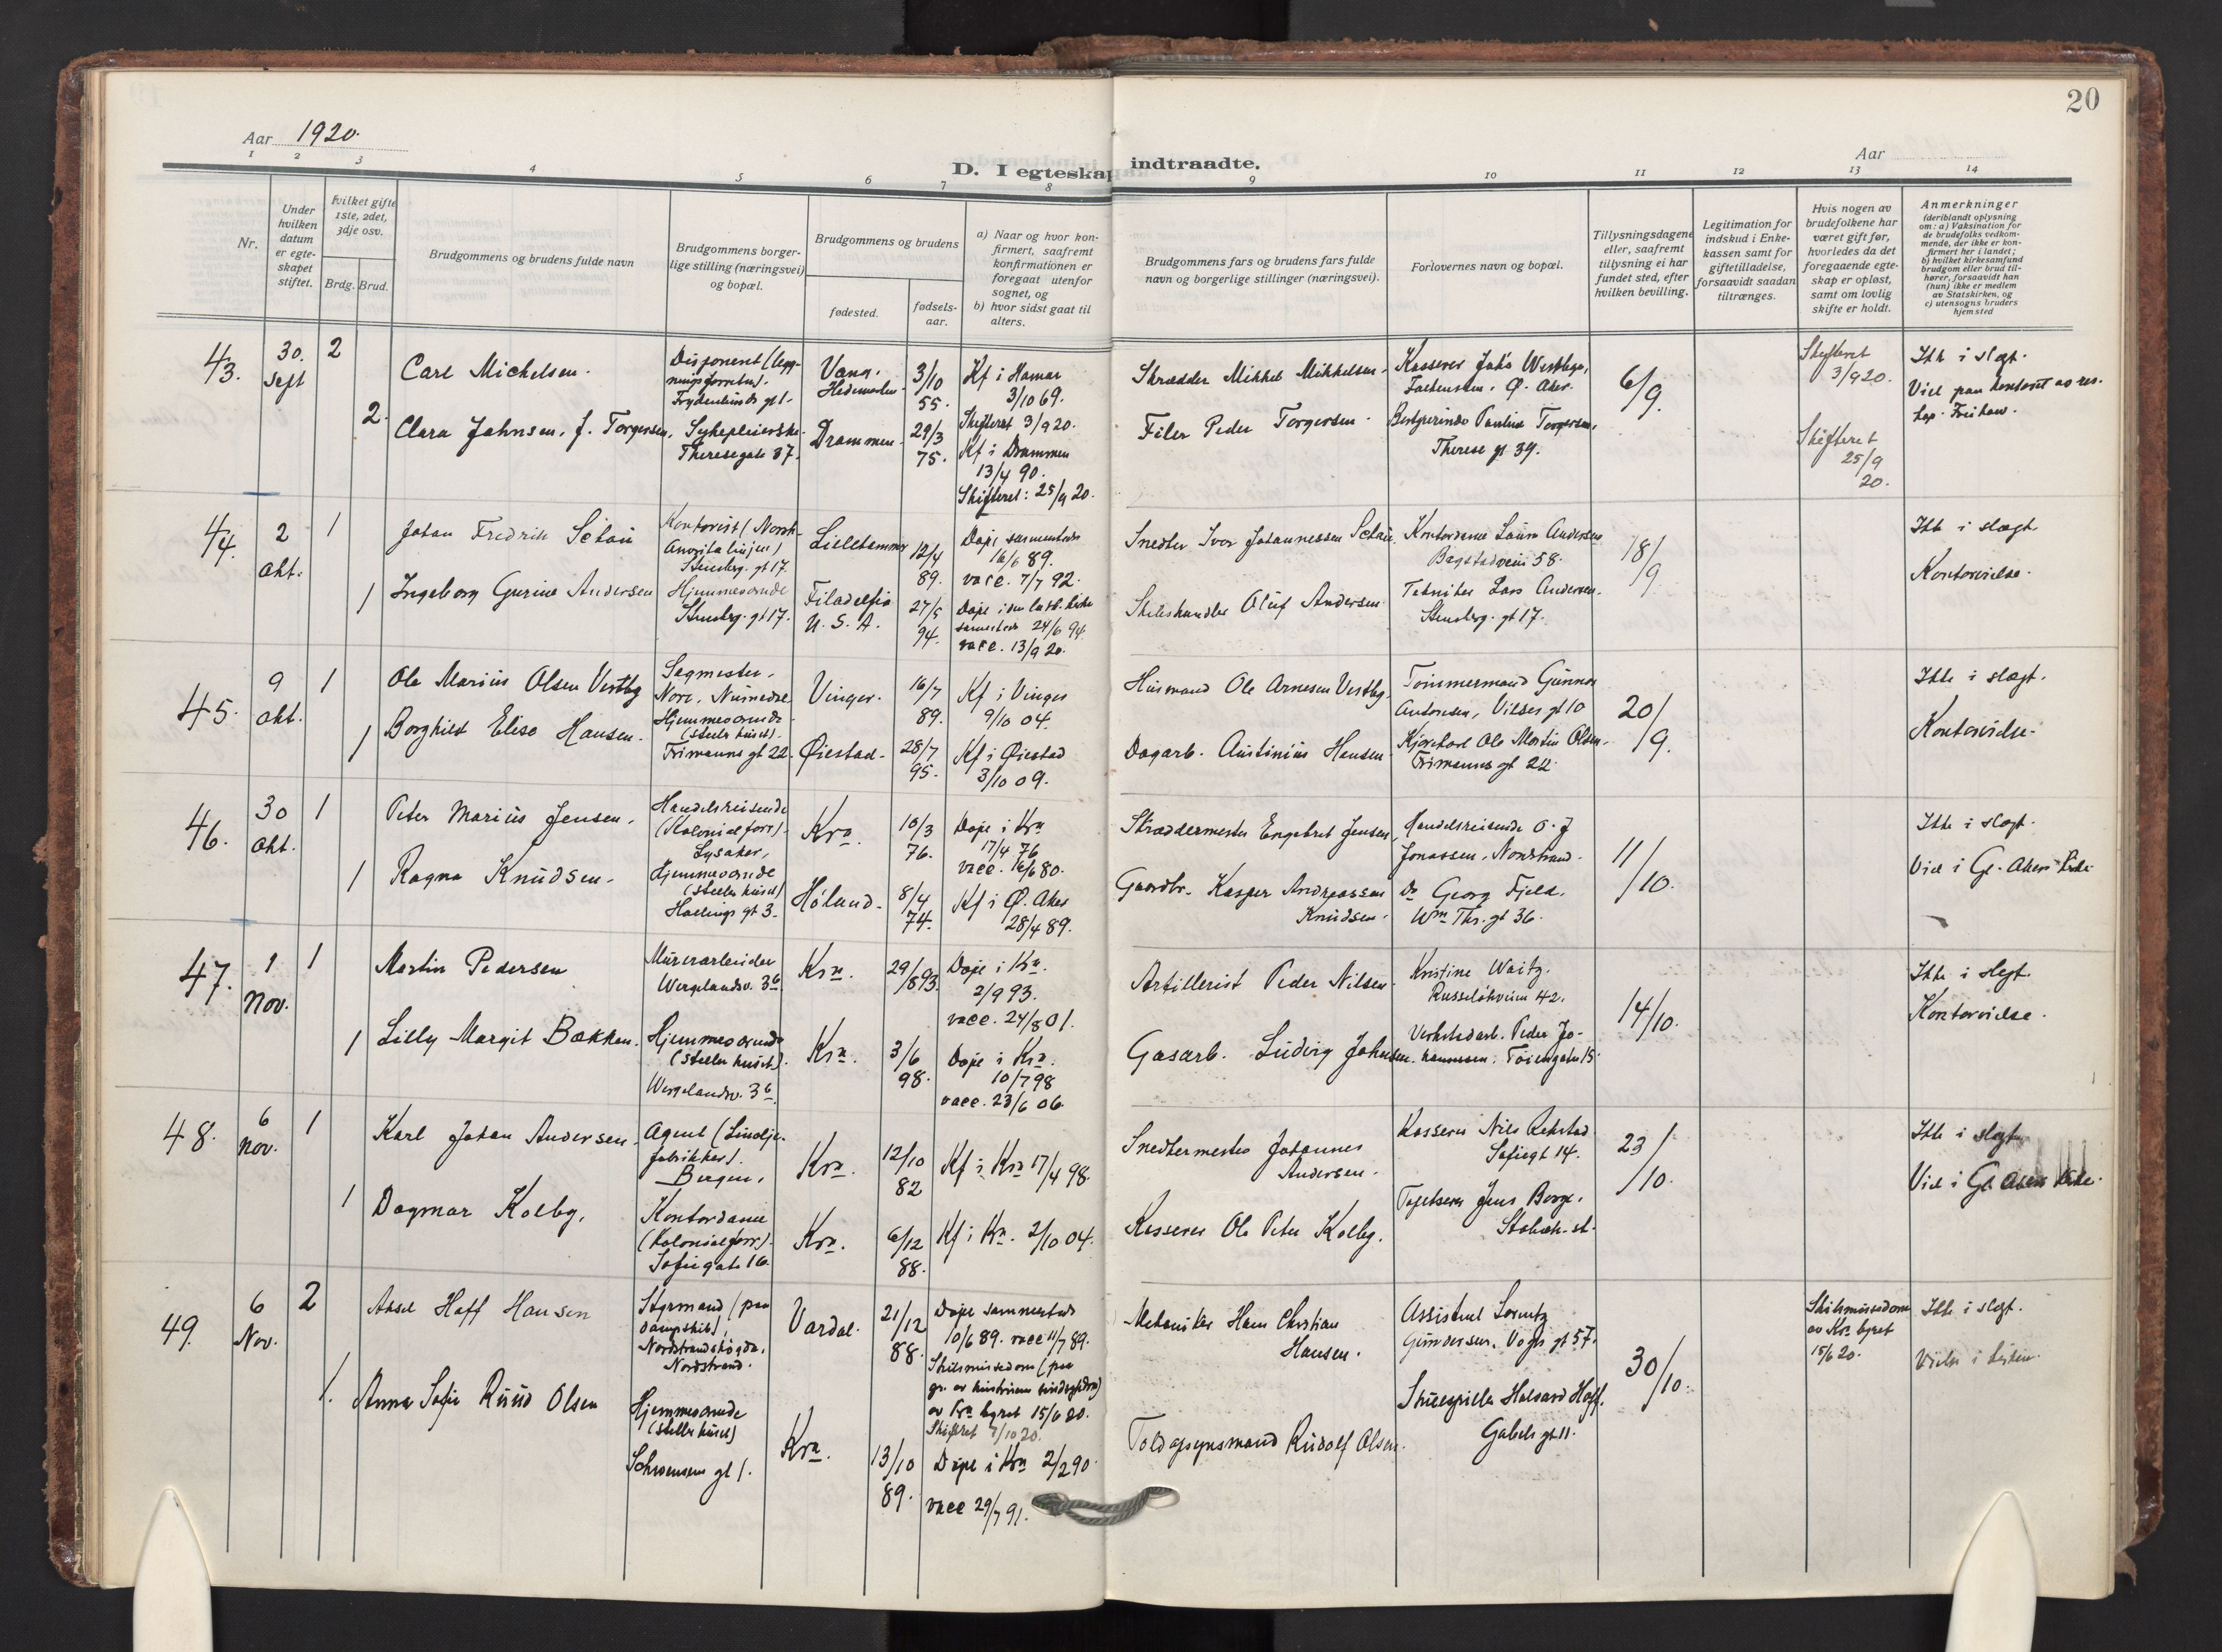 20
Aar 1920.
Aar
D. I egteskap indtraadte.
1 2 3 4 5 6 7 8 9 10 11 12 13 14
Nr.
Under hvilken datum er egteskapet stiftet.
hvilket gifte 1ste, 2det, 3dje osv.
Brdg. Brud.
Brudgommens og brudens fulde navn
Brudgommens borgerlige stilling (næringsvei) og bopæl.
Brudgommens og brudens
fødested.
fødselsaar.
a) Naar og hvor konfirmert, saafremt konfirmationen er foregaat utenfor sognet, og
b) hvor sidst gaat til alters.
Brudgommens fars og brudens fars fulde navn og borgerlige stillinger (næringsvei).
Forlovernes navn og bopæl.
Tillysningsdagene eller, saafremt tillysning ei har fundet sted, efter hvilken bevilling.
Legitimation for indskud i Enkekassen samt for giftetilladelse, forsaavidt saadan tiltrænges.
Hvis nogen av brudefolkene har været gift før, hvorledes da det foregaaende egteskap er opløst, samt om lovlig skifte er holdt.
Anmerkninger
(deriblandt oplysning om: a) Vaksination for de brudefolks vedkommende, der ikke er konfirmert her i landet; b) hvilket kirkesamfund brudgom eller brud tilhører, forsaavidt han (hun) ikke er medlem av Statskirken, og c) utensogns bruders hjemsted
43. 30. Sept 2
Carl Michelsen.
Disponent
Vang, Hedemarken
3/10 55.
Kf i Hamar 3/10 69.
Skifteret 3/9 20.
Skrædder Mikkel Mikkelsen.
Kasserer Westbye, Ø. Aker.
6/9.
Skifteret 3/9 20.
Ikke i slegt.
Viel paa kontoret av res. kap.
2. Clara Johnsen, f. Torgersen.
Sykepleierske. Theresegate 37.
Drammen
29/3 75.
Kf i Drammen 13/4 90.
Skifteret: 25/9 20.
Filer Peder Torgersen.
Bestyrerinde Pauline Torgersen, Therese gt 39.
Skifteret 25/9 20.
44. 2 Okt. 1
Johan Fredrik Setaii
Kontorist (Norsk Amerika linjen) Stensberg. gt 17.
Lillehammer
12/4 89.
Døpt sammesteds 16/6 89.
vacc. 7/7 92.
Snedker Iver Johannessen
Kontordame Laura Andersen Bogstadveien 58.
18/9
Ikke i slegt
Kontorvielse.
1 Ingeborg Gurine Andersen
Hjemmeværende Stensberg. gt 17.
Filadelfia U. S. A.
27/5 94.
Døpt i den luth. kirke sammesteds 24/6 94.
vacc. 13/9 20.
Oluf Andersen
Tekniker Lars Andersen. Stensberg. gt 17.
45. 9 Okt. 1
Ole Marius Olsen Vestby
Sagmester, Nore, Numedal
Vinger.
16/7 89.
Kf i Vinger 9/10 04.
Husmand Ole Arnesen Vestby.
Tømmermand Gunnar Antonsen, Vibes gt 10
20/9.
Ikke i slegt.
Kontorvielse.
1 Borghild Elise Hansen.
Hjemmeværende (steller huset). Frimanns gt 22.
Øiestad.
28/7 95.
Kf i Øiestad 3/10 09.
Dagarb. Austinius Hansen
Kjørekarl Ole Martin Olsen. Frimanns gt 22.
46. 30 Okt. 1
Peter Marius Jensen.
Handelsreisende (Kolonialforr). Lysaker,
Kra.
10/3 76.
Døpt i Kra 17/4 76
vacc. 16/6 80.
Skræddermester Engebret Jensen,
Handelsreisende O. J. Jonassen, Nordstrand.
11/10.
Ikke i slegt.
Viel i Gl. Akers kirke
1 Ragna Knudsen.
Hjemmeværende (steller huset) Hallings gt 3.
Høland.
8/4 74.
Kf i Ø. Aker 28/4 89.
Gaardbr. Kasper Andreassen Knudsen.
Dr Georg Fjeld. Wm Thr. gt 36.
47. 1 Nov. 1
Martin Pedersen
Murerarbeider Wergelandsv. 36.
Kra.
29/8 93.
Døpt i Kra. 2/9 93.
vacc. 24/8 01.
Artillerist Peder Nilsen.
Kristine Waitz. Russeløkveien 42.
14/10.
Ikke i slegt.
Kontorvielse.
1 Lilly Margit Bakken.
Hjemmeværende (steller huset). Wergelandsv. 36.
Kra.
3/6 98.
Døpt i Kra. 10/7 98
vacc. 23/6 06.
Gasarb. Ludvig Johnsen.
Verkstedarb. Peder Johannessen. Tøiengaten 15.
48. 6 Nov. 1
Karl Johan Andersen.
Agent (Linoljefabrikker). Bergen,
Kra.
12/10 82
Kf i Kra 17/4 98.
Snedkermester Johannes Andersen.
Kasserer Nils Rekstad Sofiegt 14.
23/10.
Ikke i slegt
Viel i Gl. Akers kirke.
1 Dagmar Kolby.
Kontordame (Kolonialforr). Sofiegate 16.
Kra.
6/12 88.
Kf i Kra. 2/10 04.
Kasserer Ole Peter Kolby.
Tapetserer Jens Berge. Stabæk st.
49. 6 Nov. 2
Aksel Hoff Hansen
Styrmand (paa dampskib), Nordstrandshøgda, Nordstrand.
Vardal.
21/12 88.
Døpt sammesteds 10/6 89. vacc 11/7 89.
Skilsmissedom av Kra byret 15/6 20.
Skifteret 7/10 20.
Mekaniker Hans Christian Hansen.
Assistent Lorentz Gundersen. Vogts gt 57.
30/10.
Skilsmissedom av Kra byret 15/6 20.
Ikke i slegt.
Vielse i kirken.
1. Anna Sofie Ruud Olsen
Hjemmeværende (steller huset) Schwensens gt 1.
Kra.
13/10 89.
Døpt i Kra 2/2 90.
vacc 29/7 91.
Toldopsynsmand Rudolf Olsen.
Skuespiller Halvard Hoff. Gabels gt 11.